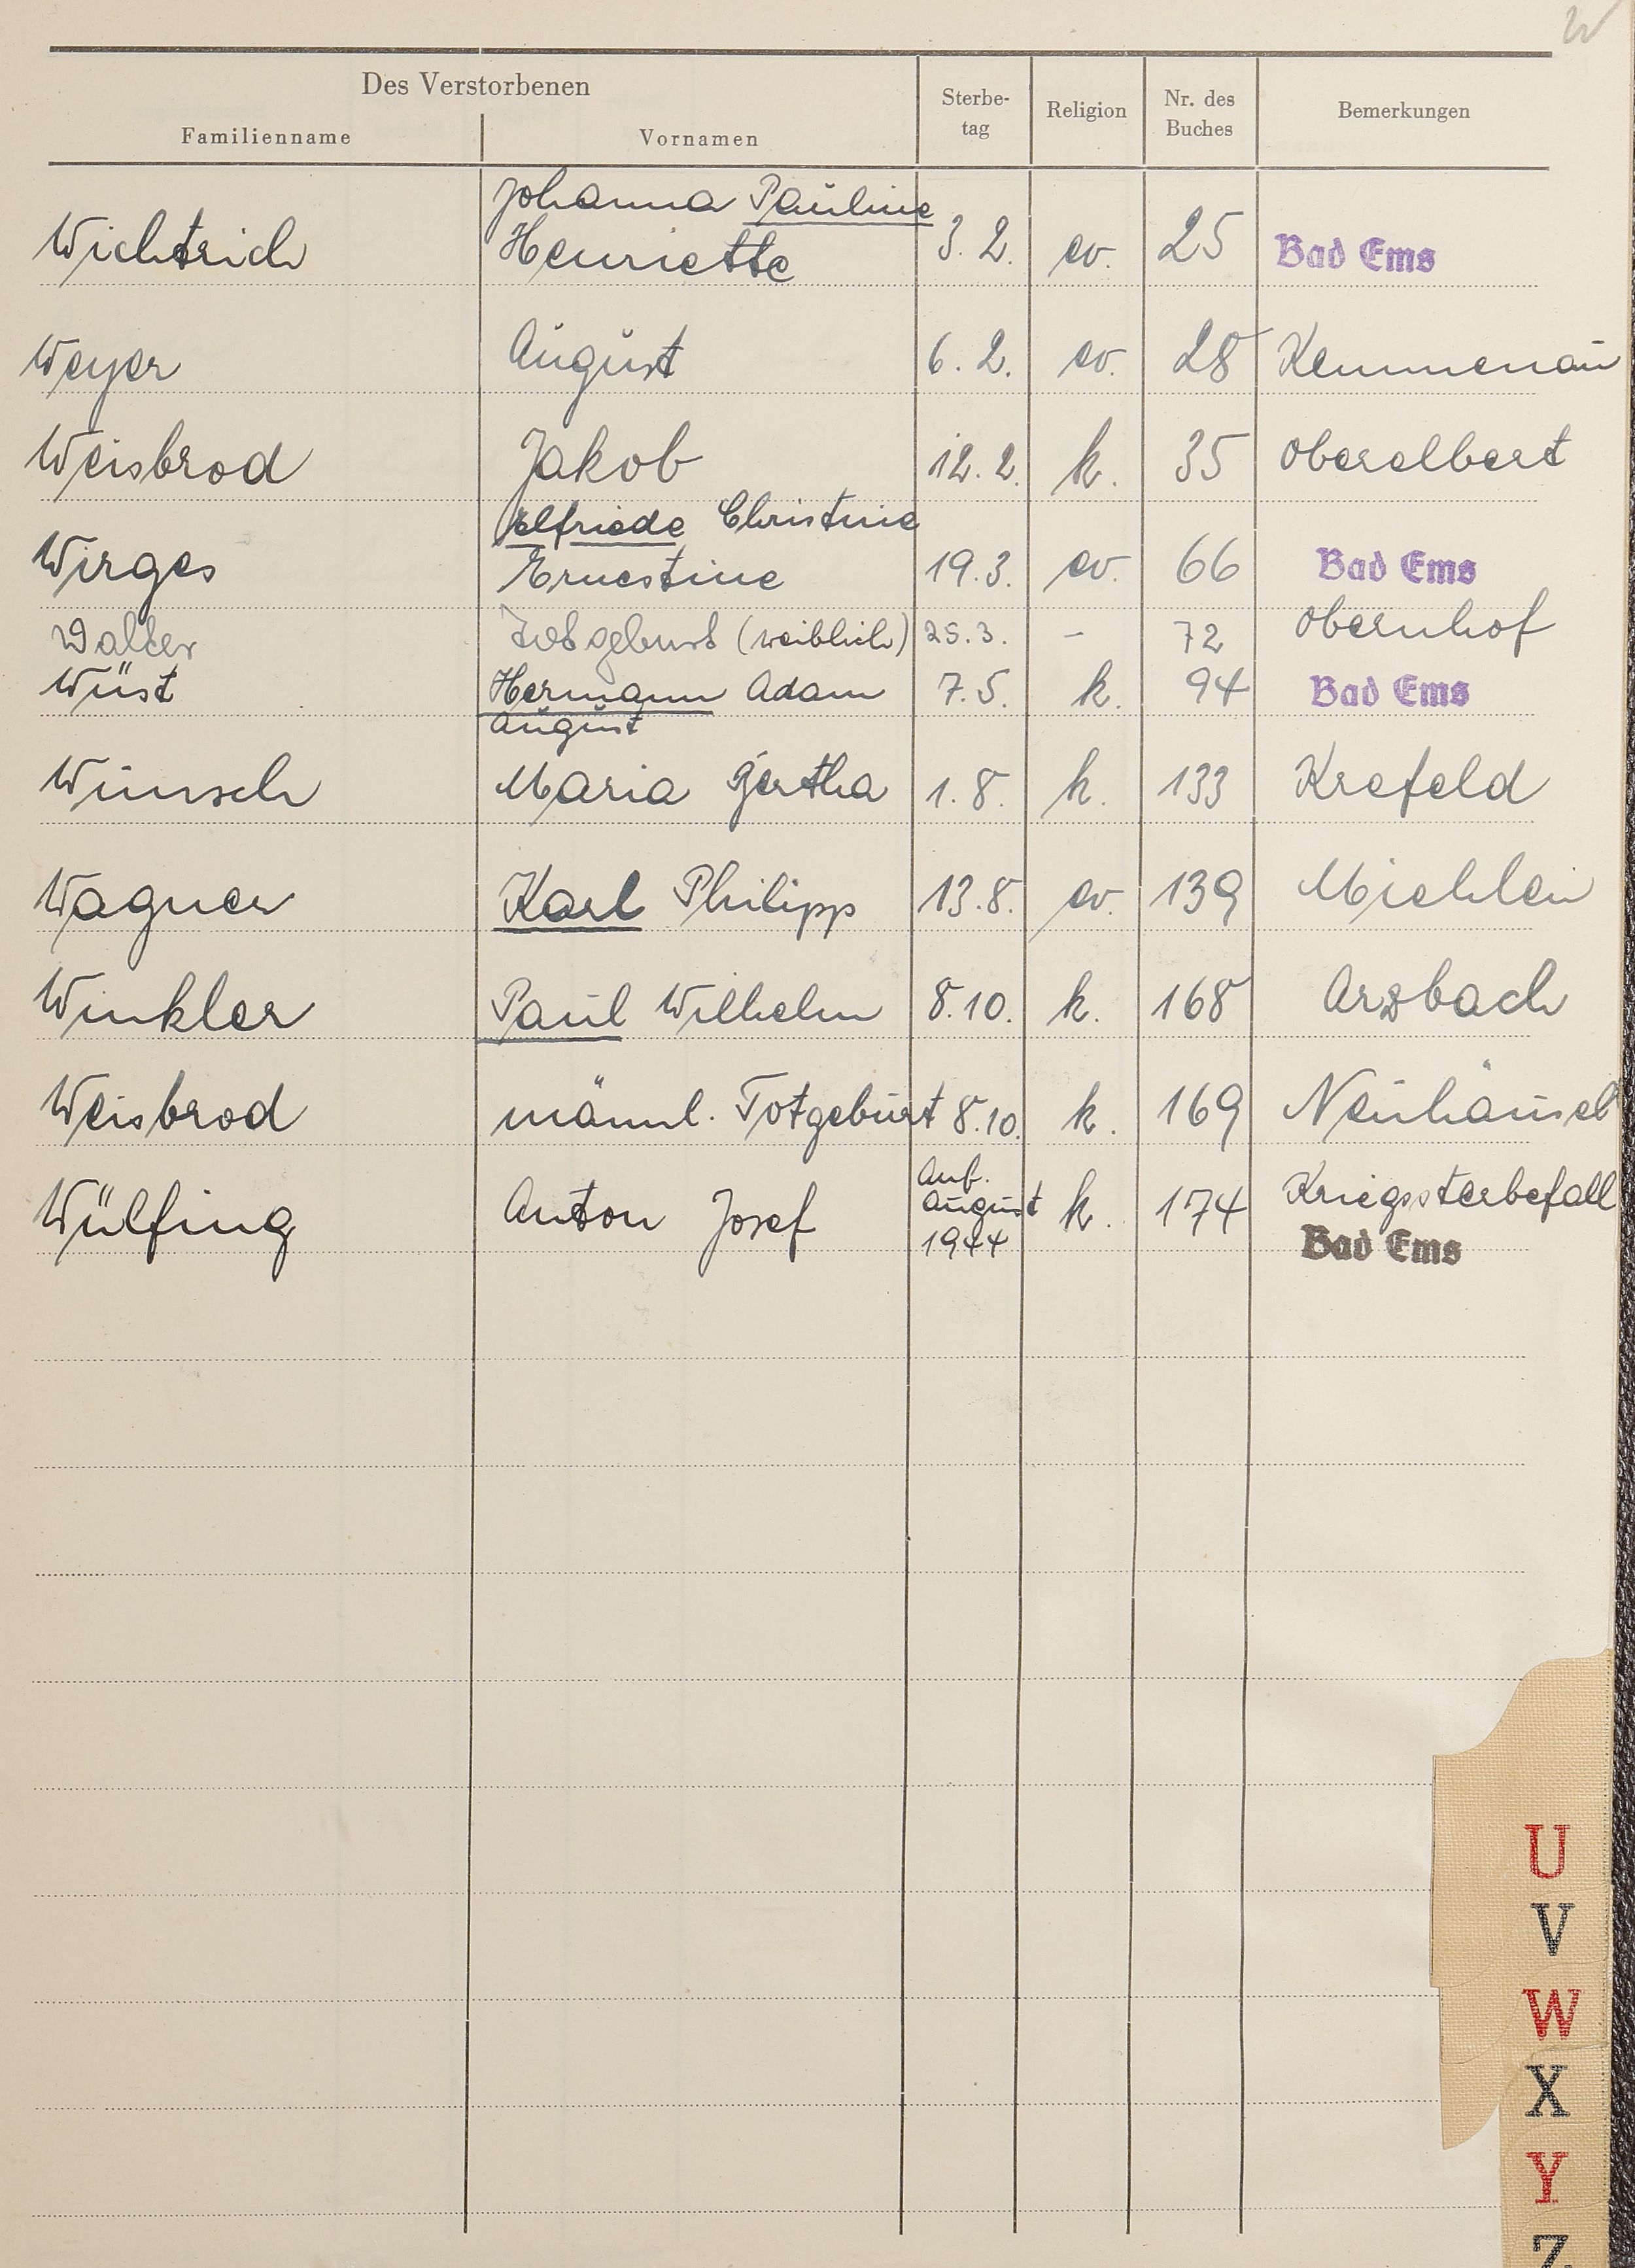 W
Des Verstorbenen
Familienname Vornamen Sterbe-tag Religion Nr. des Buches Bemerkungen
Johanna Pauline
Wichtrich Henriette 3. 2. ev. 25 Bad Ems
Weyer August 6. 2. ev. 28 Kemmenau
Weisbrod Jakob 12. 2. k. 35 Oberelbert
Elfriede Christine
Wirges Ernestine 19. 3. ev. 66 Bad Ems
Walter Totgeburt (weiblich) 25. 3. – 72 Obernhof
Wüst Hermann Adam 7. 5. k. 94 Bad Ems
August
Wunsch Maria Gertha 1. 8. k. 133 Krefeld
Wagner Karl Philipp 13. 8. ev. 139 Miehlen
Winkler Paul Wilhelm 8. 10. k. 168 Arzbach
Weisbrod männl. Totgeburt 8. 10. k. 169 Neuhäusel
Wülfing Anton Josef Anf. August 1944 k. 174 Kriegssterbefall
Bad Ems
U
V
W
X
Y
Z